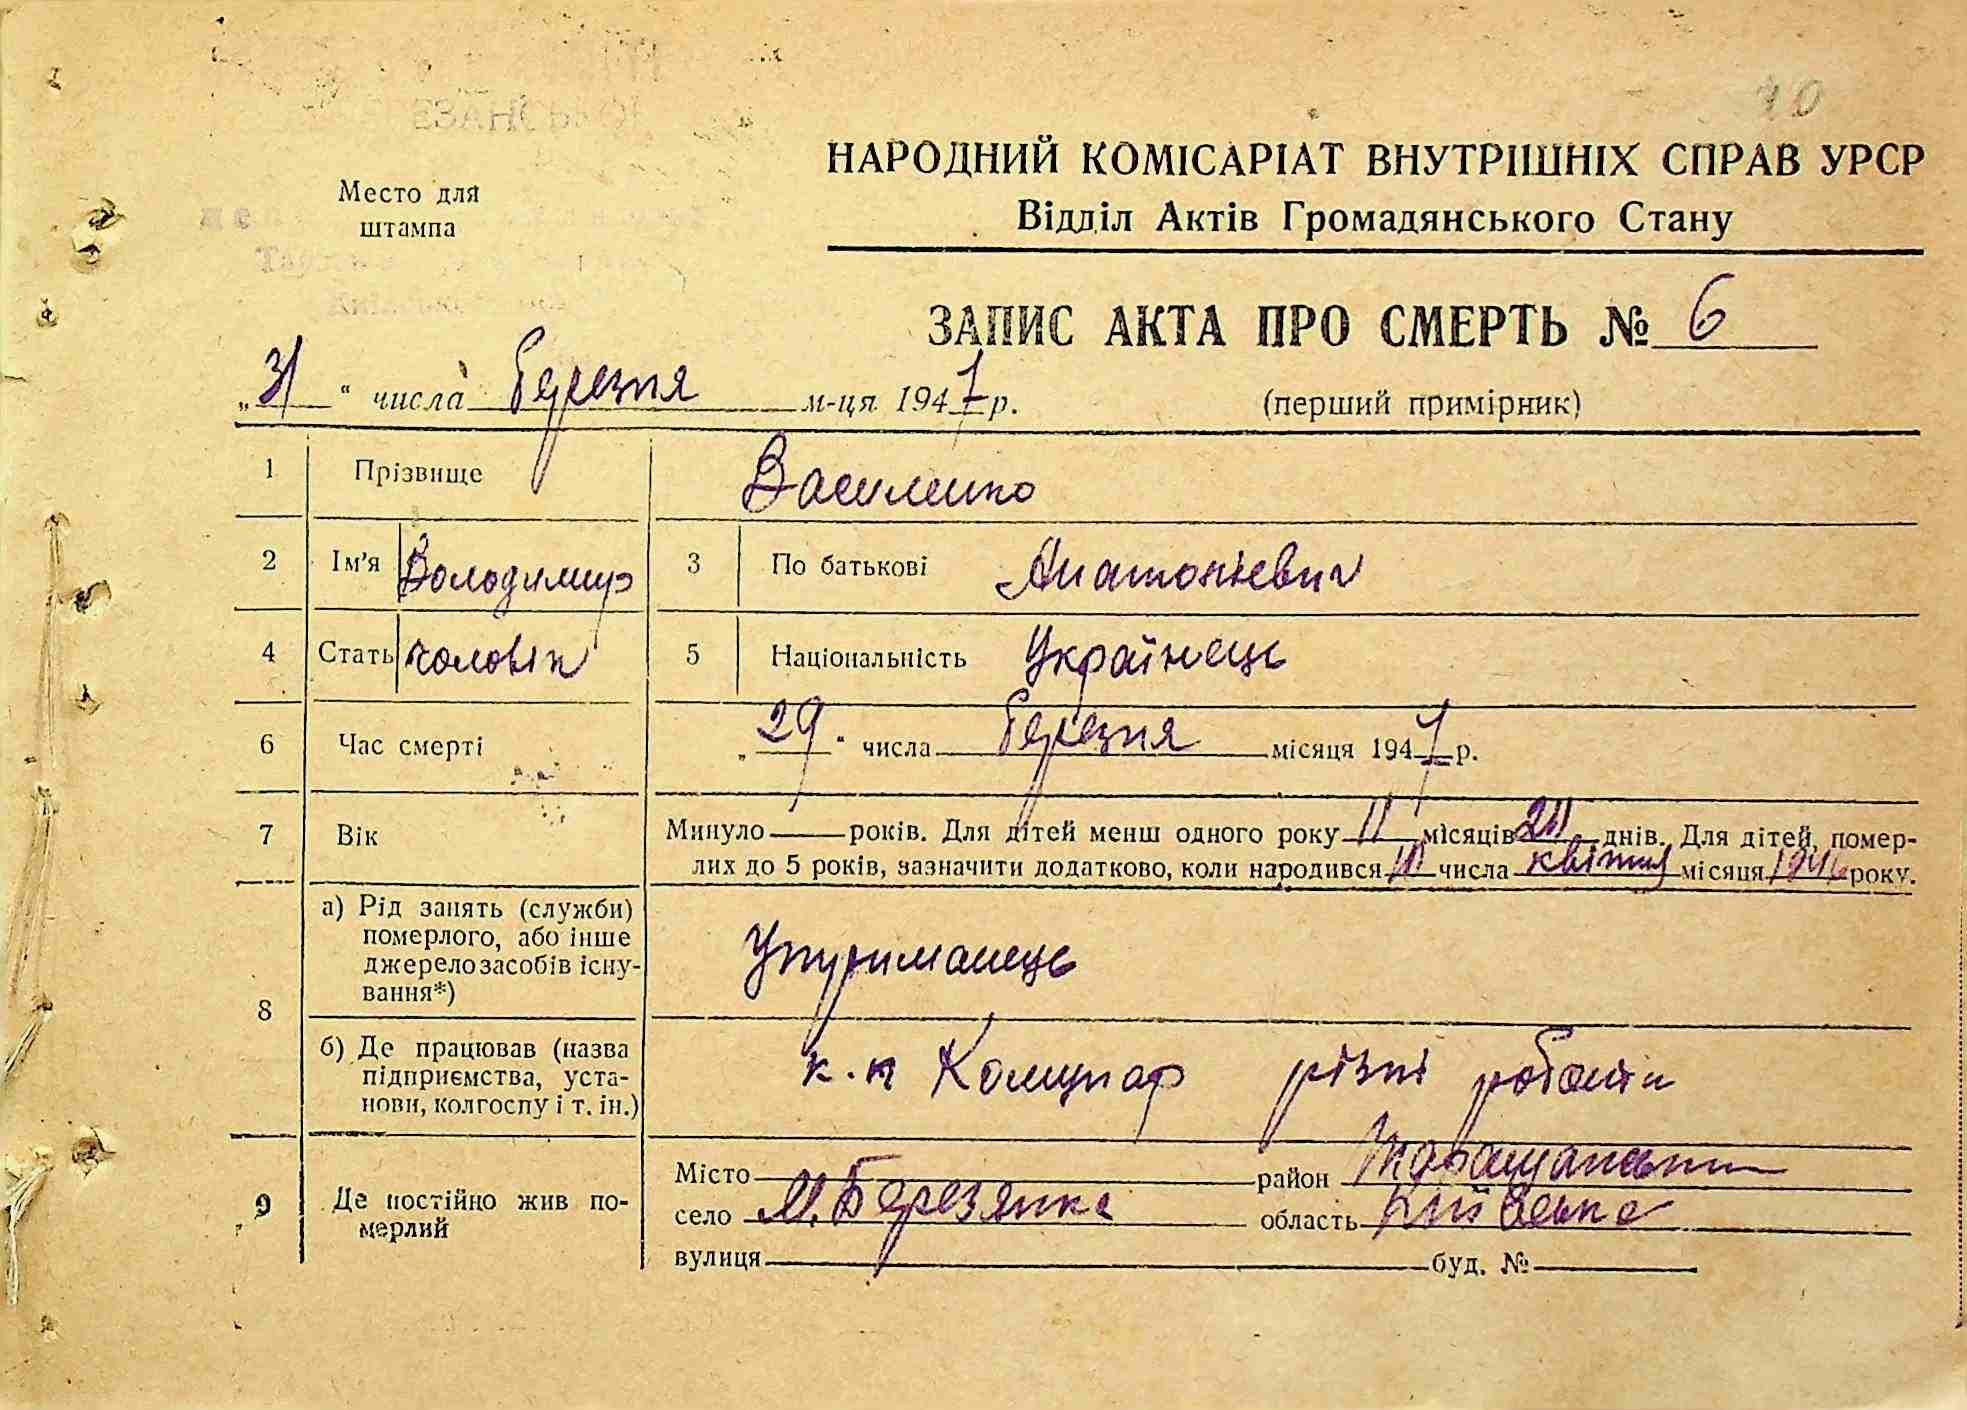 10
НАРОДНИЙ КОМІСАРІАТ ВНУТРІШНІХ СПРАВ УРСР
Место для
штампа
Відділ Актів Громадянського Стану
ЗАПИС АКТА ПРО СМЕРТЬ № 6
„31“ числа Березня м-ця 1947 р.
(перший примірник)
1 Прізвище Василенко
2 Ім'я Володимир 3 По батькові Анатонієвич
4 Стать чоловік 5 Національність Українець
6 Час смерті „29“ числа Березня місяця 1947 р.
7 Вік Минуло — років. Для дітей менш одного року 11 місяців днів. Для дітей, помер-
лих до 5 років, зазначити додатково, коли народився числа квітня місяця 1946 року.
8 а) Рід занять (служби)
померлого, або інше
джерело засобів існу-
вання*)
Утриманець
б) Де працював (назва
підприємства, уста-
нови, колгоспу і т. ін.)
к.п Комунар різні роботи
9 Де постійно жив по-
мерлий
Місто район Таращанський
село М. Березянка область Київська
вулиця буд. №